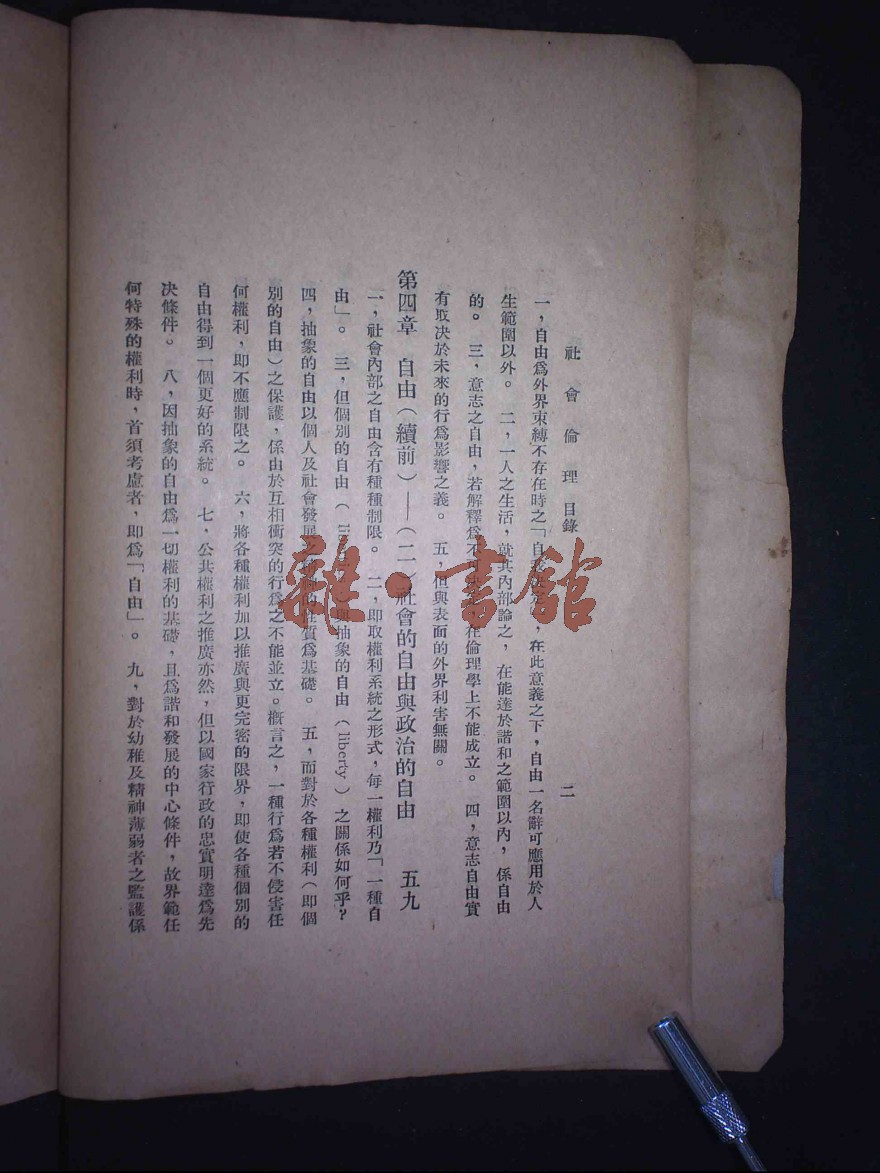 社會倫理 目錄 二
一，自由爲外界束縛不存在時之「自，在此意義之下，自由一名辭可應用於人
生範圍以外。 二，一人之生活，就其內部論之，在能達於諧和之範圍以內，係自由
的。 三，意志之自由，若解釋爲不在倫理學上不能成立。 四，意志自由實
有取决於未來的行爲影響之義。 五，但與表面的外界利害無關。
第四章 自由（續前）——（二）社會的自由與政治的自由 五九
一，社會內部之自由含有種種制限。 二，即取權利系統之形式，每一權利乃「一種自
由」。 三，但個別的自由（ 與抽象的自由（liberty）之關係如何乎？
四，抽象的自由以個人及社會發展之性質爲基礎。 五，而對於各種權利（即個
別的自由）之保護，係由於互相衝突的行爲之不能並立。概言之，一種行爲若不侵害任
何權利，即不應制限之。 六，將各種權利加以推廣與更完密的限界，即使各種個別的
自由得到一個更好的系統。 七，公共權利之推廣亦然，但以國家行政的忠實明達爲先
决條件。 八，因抽象的自由爲一切權利的基礎，且爲諧和發展的中心條件，故界範任
何特殊的權利時，首須考慮者，即爲「自由」。 九，對於幼稚及精神薄弱者之監護係
雜·書館